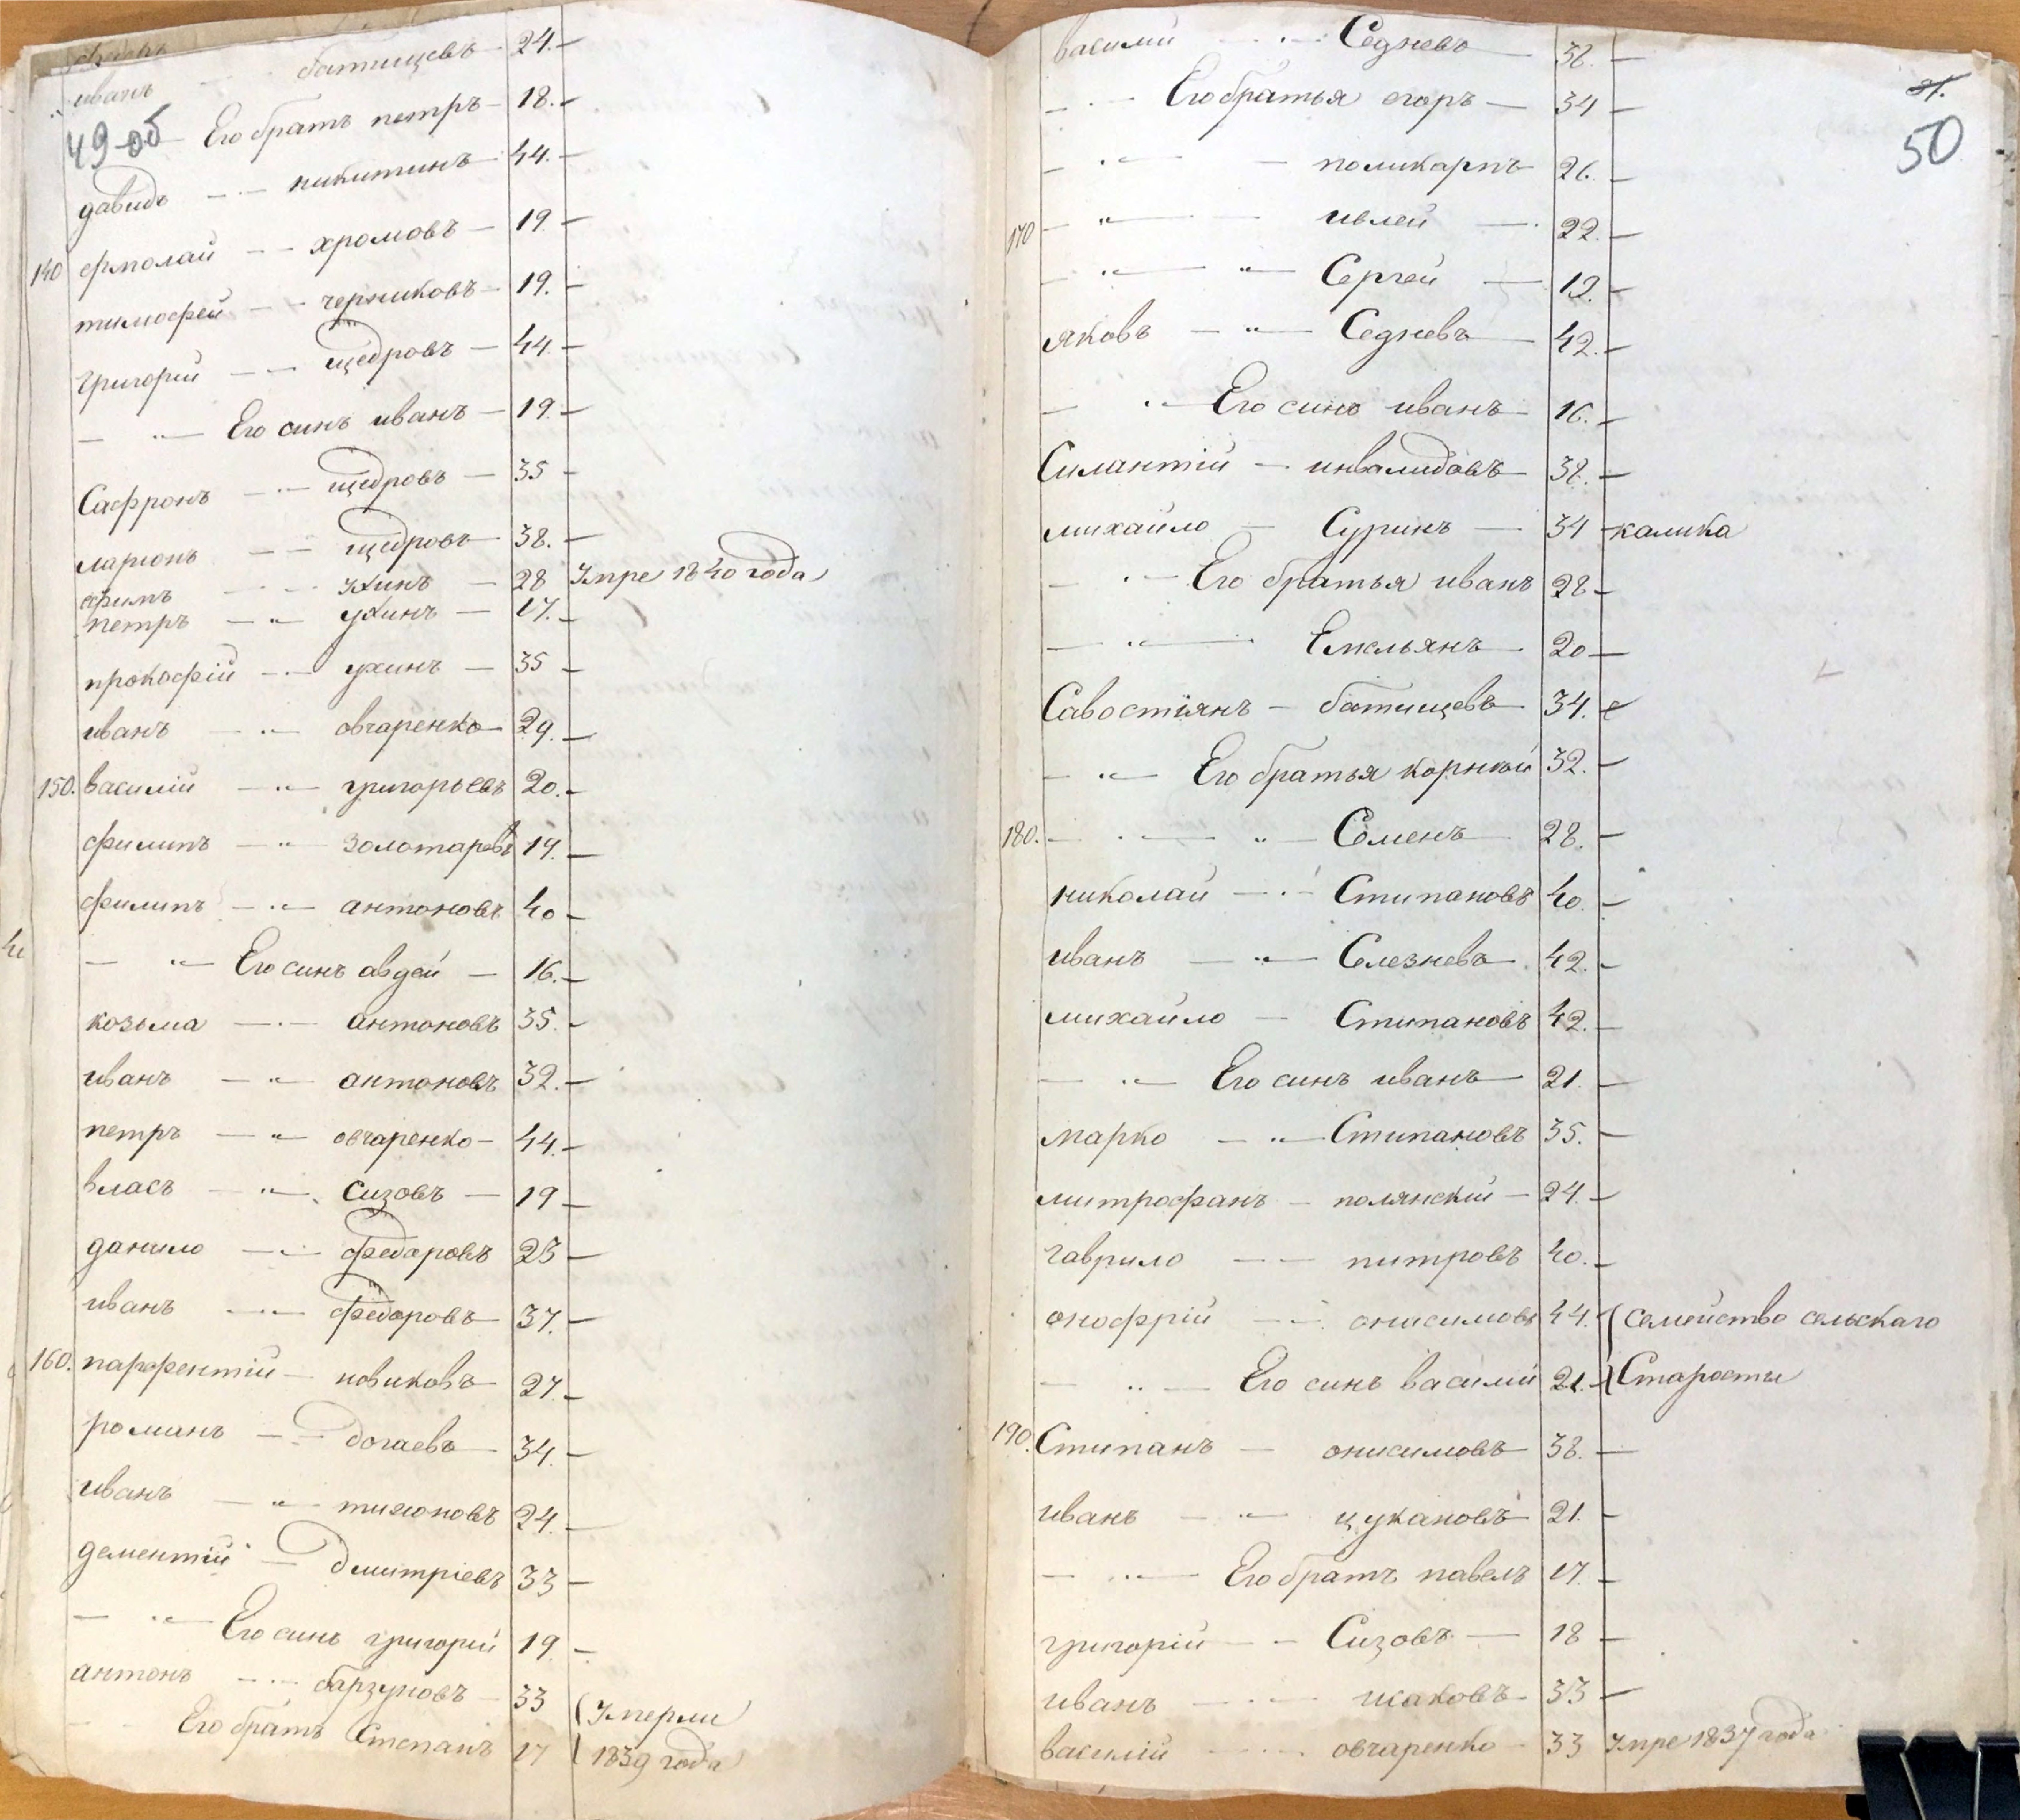 иванъ батищевъ 24.
49 об
Его братъ петръ 18.
давидъ никитинъ 44.
140 ермолай хромовъ 19
тимофей черниковъ 19.
григорий щедровъ 44.
Его синъ иванъ 19.
Сафронъ щедровъ 35
ларионъ щедровъ 38.
ефимъ ухинъ 28 Умре 1840 года
петръ ухинъ 17.
прокофій ухинъ 35
иванъ овчаренко 29.
150. василій григорьевъ 20.
филипъ золотаревъ 17.
филипъ антоновъ 40
Его синъ авдей 16.
козьма антоновъ 35.
иванъ антоновъ 32.
петръ овчаренко 44.
власъ Сизовъ 19
данило федоровъ 25
иванъ федоровъ 37.
160. парфентій новиковъ 27.
романъ догаевъ 34.
иванъ тихоновъ 24.
дементій дмитріевъ 33
Его синъ григорий 19.
антонъ барзуновъ 33 Умерли
Его братъ Степанъ 17 1839 года
василий Седневъ 38.
50
Его братья егоръ 34
поликарпъ 26.
170 ивлей 22.
Сергей 19.
яковъ Седневъ 42.
Его синъ иванъ 16.
Силантій инвалидовъ 38.
михайло Суринъ 34 калика
Его братья иванъ 28
Емельянъ 20
Савостіянъ батищевъ 34.
Его братья корней 32.
180. Семенъ 28.
николай Стипановъ 40.
иванъ Селезневъ 42.
михайло Стипановъ 42.
Его синъ иванъ 21.
марко Стипановъ 35.
митрофанъ полянский 24.
гаврило питровъ 40.
онофрій онисимовъ 44. Семейство сельскаго
Его синъ василий 21. Старосты
190. Стипанъ онисимовъ 38.
иванъ цукановъ 21.
Его братъ павелъ 17.
григорій Сизовъ 18
иванъ исаковъ 33
василій овчаренко 33 Умре 1837 года